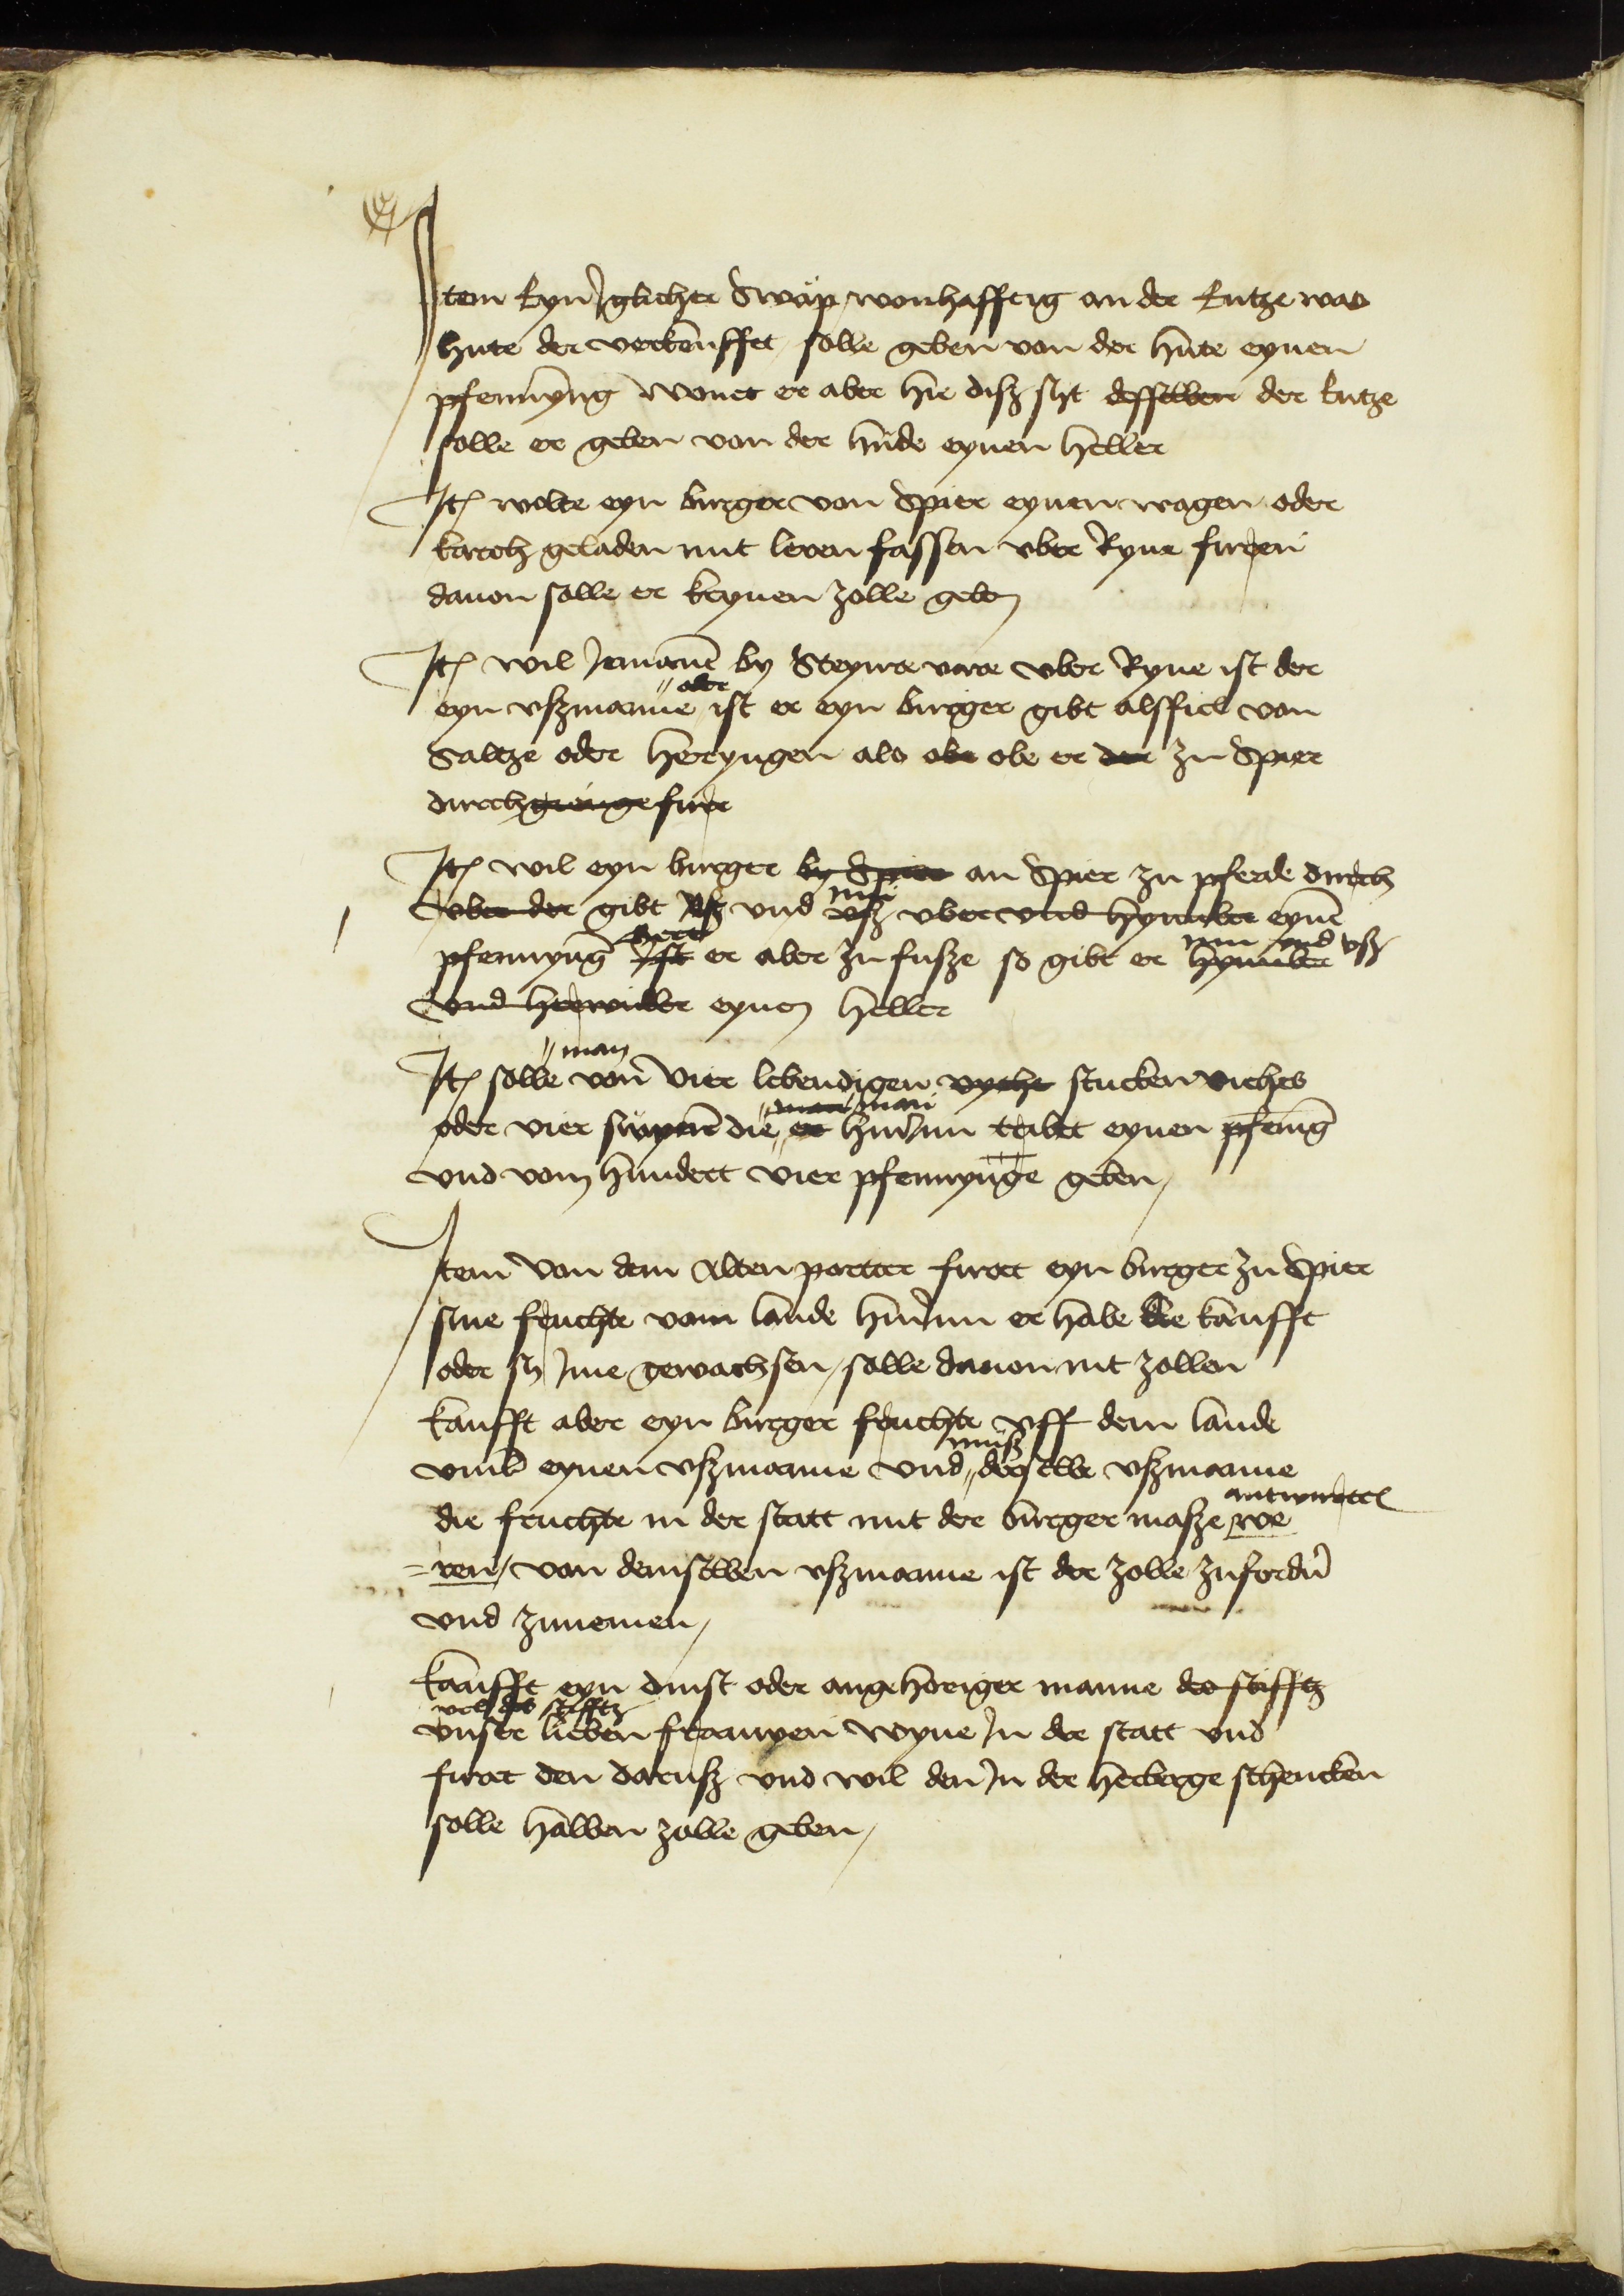 Item Eyn Jglicher Swap wonhafftig an der Entze was
hute der verkeufft solle geben von der hute eynen
pfennyng wonet er aber hie disz syt desselben der Entze
solle er geben von der hude eynen heller
Jt wolte eyn burger von Spier eynen wagen oder
karrch geladen mit leren fassen vber Ryne furen
dauon solle er keynen zolle geben
Jt wil Jemant by vber Ryne ist der
eyn vszmanne aber ist er eyn burger gibt alsfiel von
Saltze oder heryngen als obe obe er der zu Spier
durch fure
Jt wil eyn burger by Spier an Spier zu pferde durch
vber der gibt vsz vnd inn vsz vber vnd hynuber eynen
pfennyng Jst er aber zu fusze so gibt er hynuber inn vnd vsz
vnd herwider eynen heller
Jt solle man von vier lebendigen vyche stucken viches
oder vier swynen die er man man hin Jnn tribt eynen pfennig
vnd vom hundert vier pfennynge geben
Item von dem Alten portter furet eyn burger zu Spier
sine fruchte vom lande hin Jnn er habe die kaufft
oder sy Jme gewachsen solle dauon nit zollen
kaufft aber eyn burger fruchte vff dem lande
vmb eynen vszmanne vnd musz derselbe vszmanne
die fruchte in der statt mit der burger masze antwurten we
=ren von demselben vszmanne ist der zolle zufordern
vnd zunemen
kaufft eyn dinst oder angehoriger manne des stiffts
des stiffts
vnser lieben frauwen wyne Jn der statt vnd
furet den darusz vnd wil den Jn der herberge schencken
solle halben zolle geben